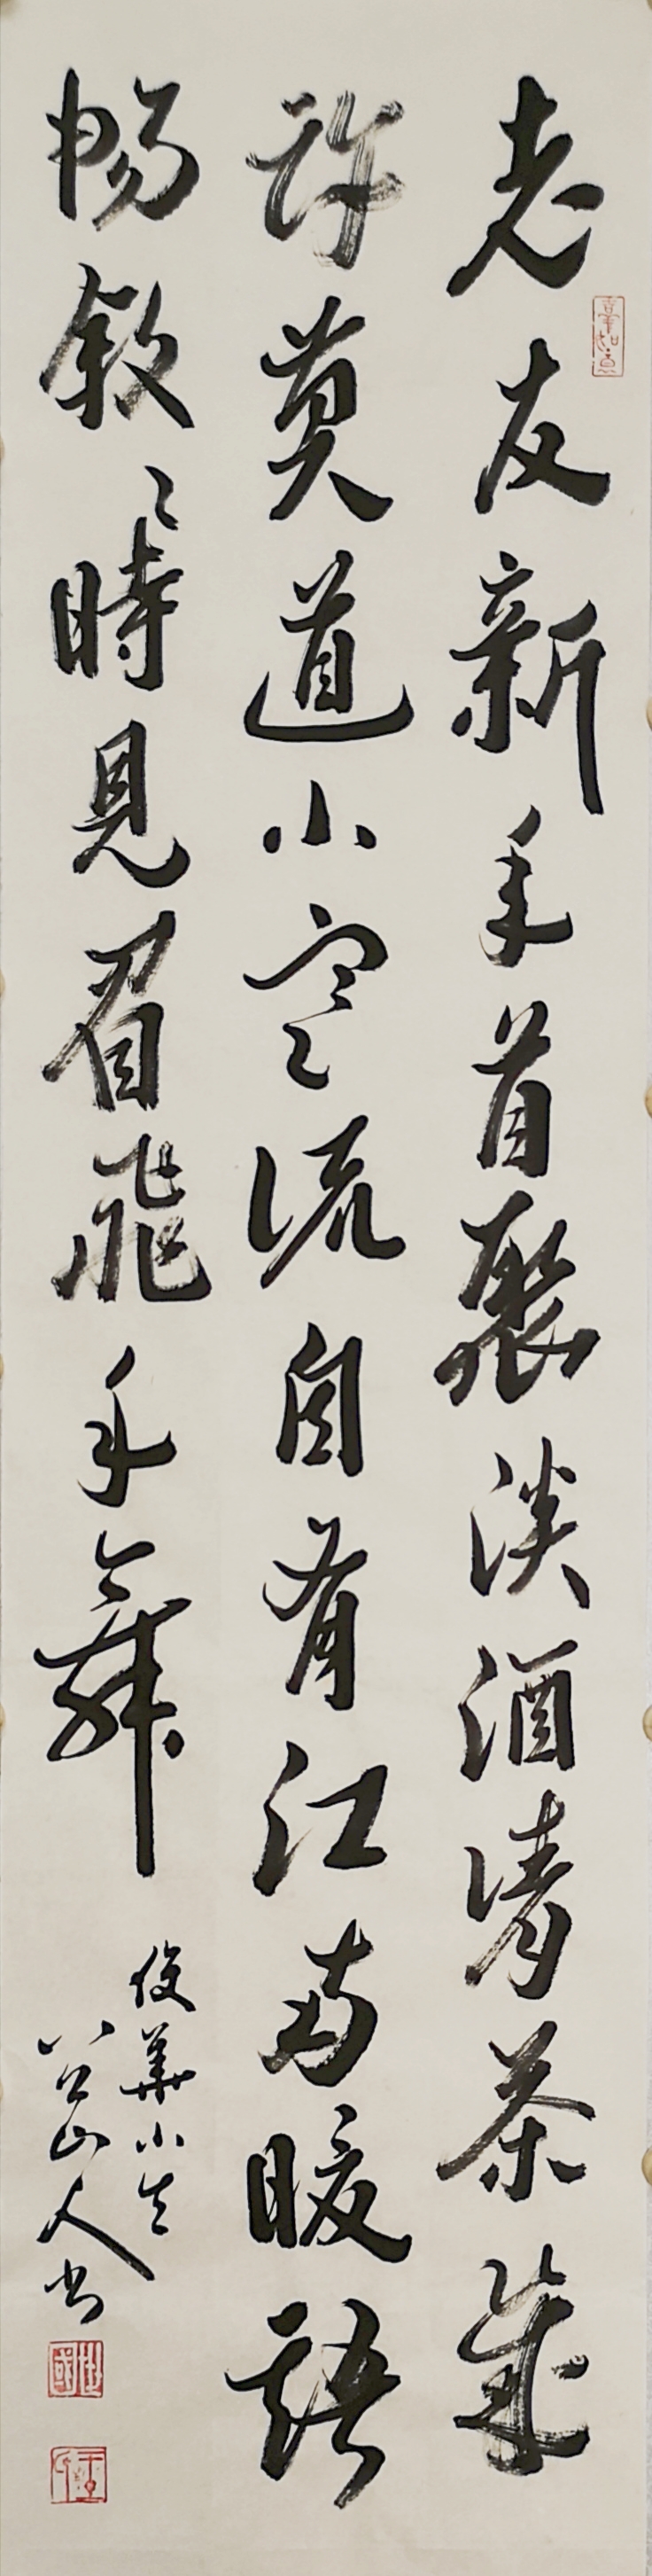 老友新年首聚淡酒清茶幾
許莫道小寒流自有江南暖語
暢敘〻時見眉飛手舞
俊華小令
八公山人书